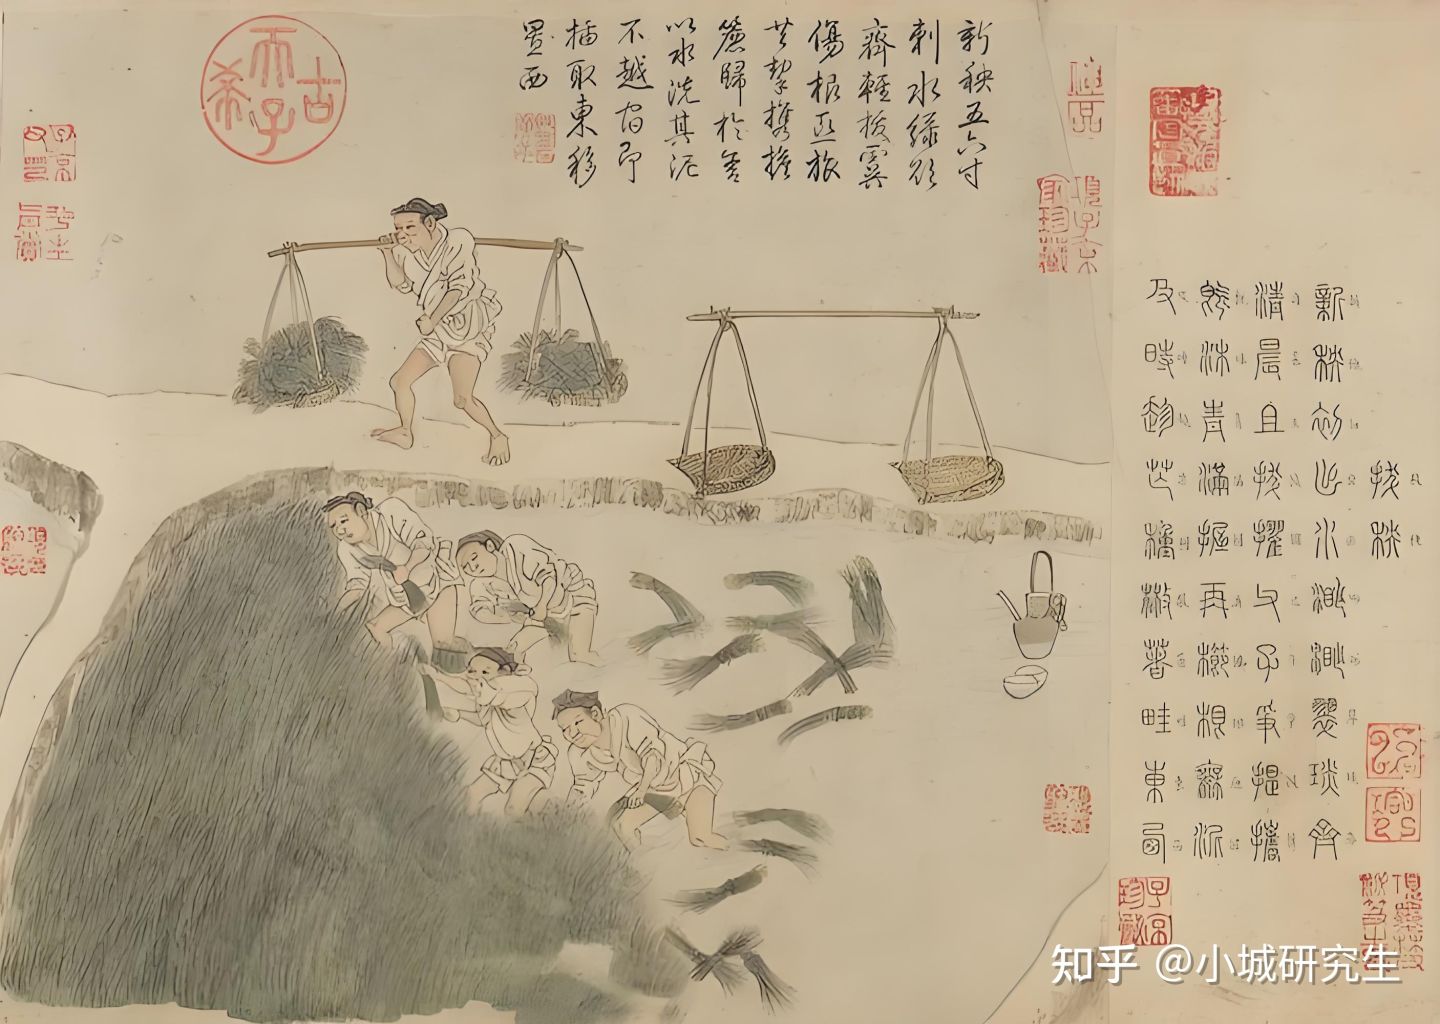 拔秧
新秧初出水渺渺翠琰齊
清晨且拔擢父子爭提攜
既沐青滿握再櫛根無泥
及時趁芒種散著畦東西
新秧五六寸
刺水綠欲
齊輕拔虞
傷根亞旅
共挈攜擔
簦歸於舍
以水洗其泥
不越宿即
插取東移
置西
古希天子
項子京家珍藏
知乎 @小城研究生